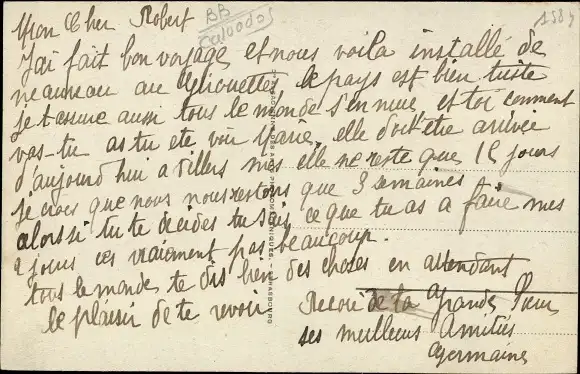 Mon Cher Robert
BB
Calvados
1584
J'ai fait bon voyage et nous voila installé de
nauveau au Gliouettes le pays est bien triste
je t'assure aussi tous le monde s'ennuie et toi comment
vas-tu as tu ete voir Marie, elle doit être arrivée
d'aujourd hui a Villers mes elle ne reste que 15 jours
je crois que nous nous restons que 3 semaines
alorssi tu te decides tu sais ce que tu as a faire mes
jours ces vraiement pas beaucoup.
tous le monde te dis bien des choses en attendant
le plaisir de te revoir
Recoie de ta Grande
ses meilleurs Amitiés
Germaine
STRASBOURG